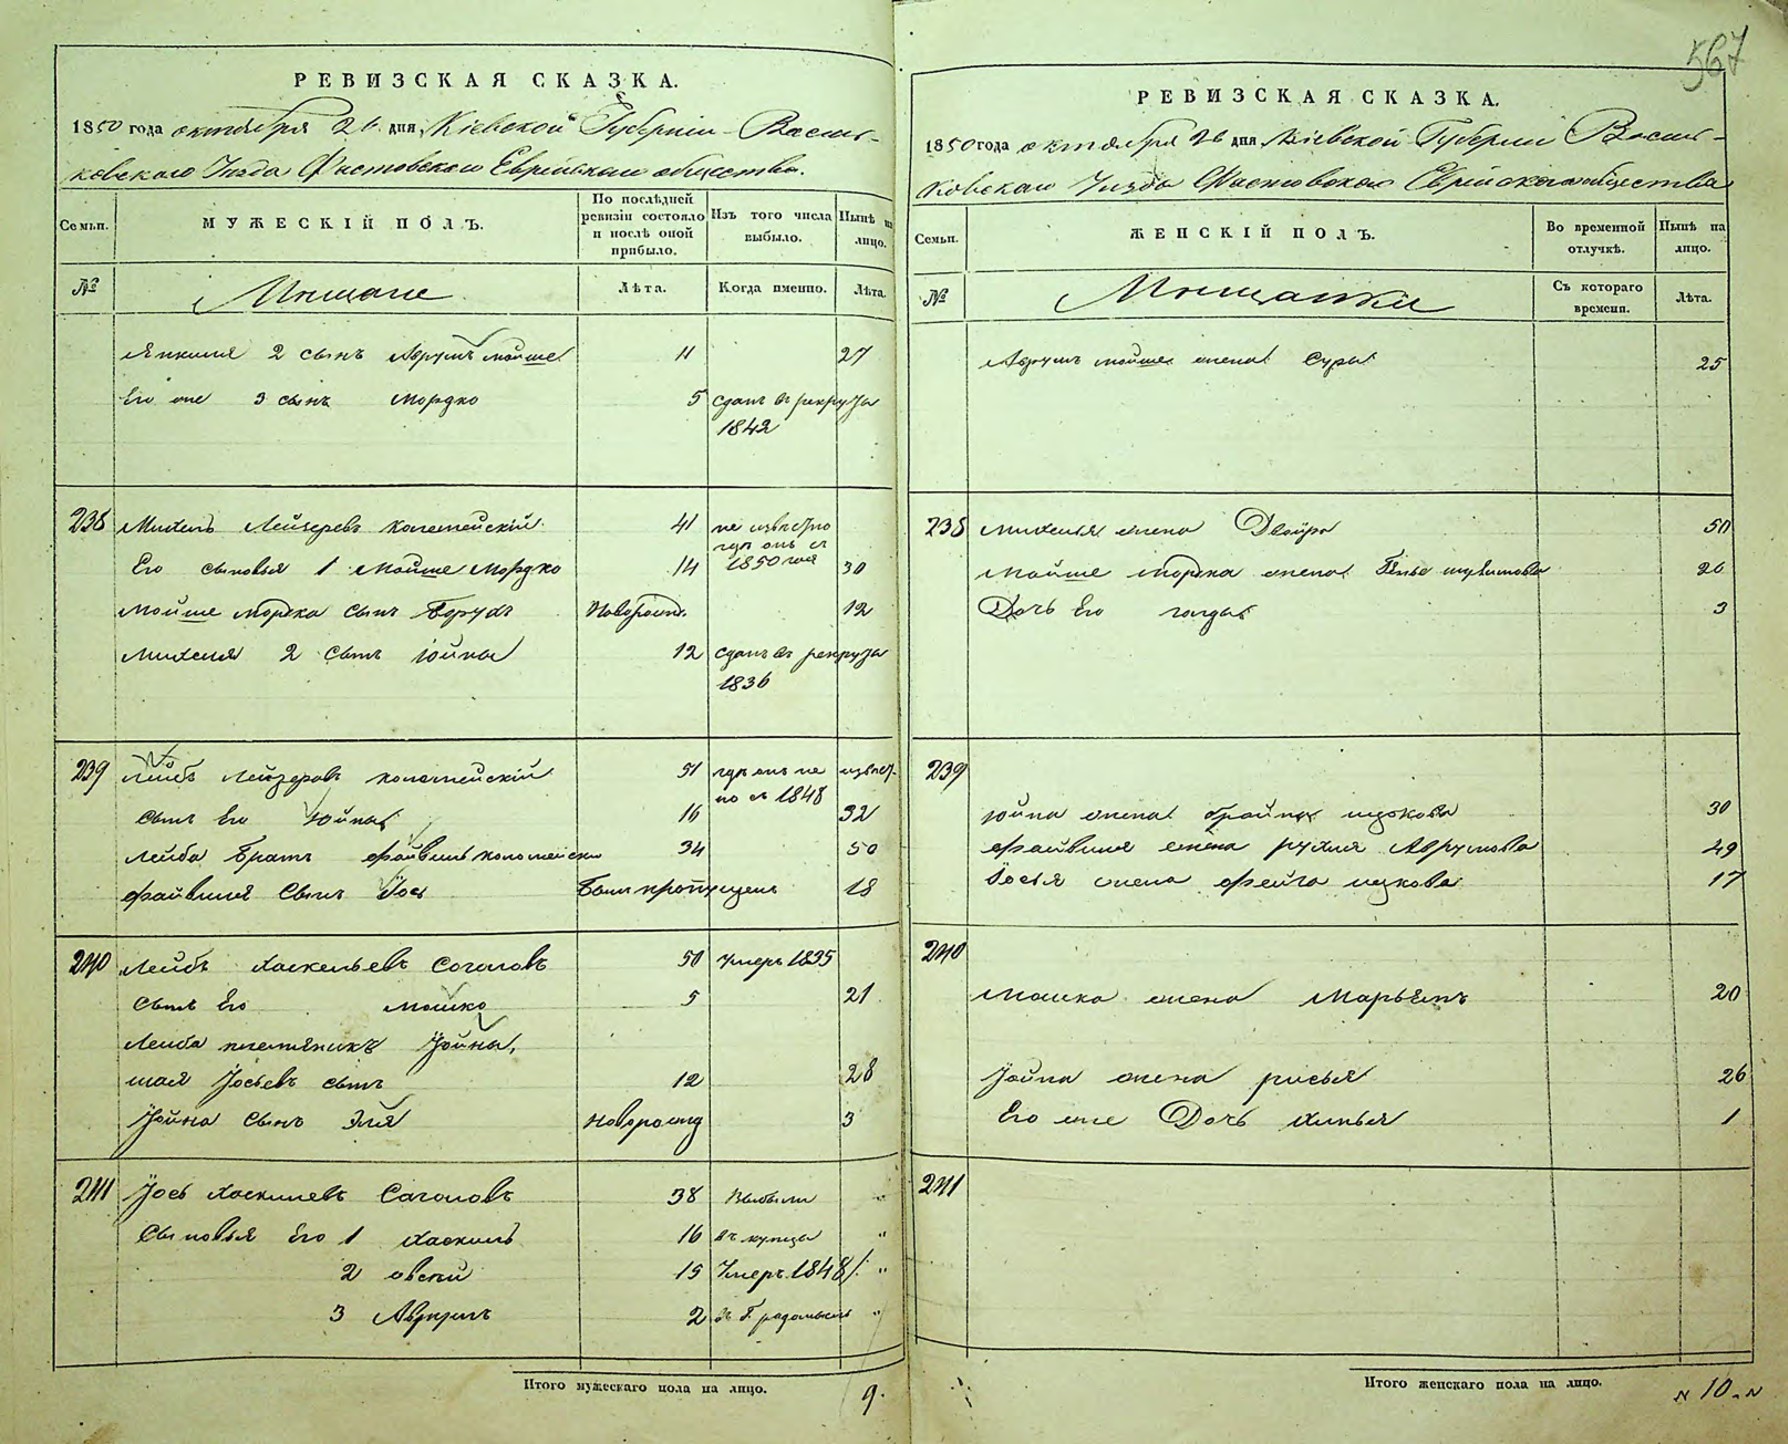 567
РЕВИЗСКАЯ СКАЗКА.
1850 года октября 26 дня, Кіевской Губерніи Василь-
ковскаго Уезда Фастовскаго Еврейскаго общества.
Семьи.
МУЖЕСКІЙ ПОЛЪ.
По послѣдней ревизіи состояло и послѣ оной прибыло.
Изъ того числа выбыло.
Нынѣ на лицо.
№
Мещане
Лѣта.
Когда именно.
Лѣта.
Янкеля 2 сынъ Аврумъ Мойше 11 27
Его же 3 сынъ Мордко 5 сданъ въ рекруты
1842
238 Михель Лейзеровъ Коломейскій 41 не извѣстно
где онъ съ
1850 года
Его сыновья 1 Мойше Мордко 14 30
Мойше Мордка сынъ Борухъ Новорожд. 12
Михеля 2 сынъ Іойна 12 сданъ въ рекруты
1836
239 Лейбъ Лейзеровъ Коломейскій 51 где онъ не извѣст-
но съ 1848
сынъ Его Юйна 16 32
Лейба Братъ Файвишъ Коломейскій 34 50
Файвиша Сынъ Іось Былъ пропущенъ 18
240 Лейбъ Хаскельевъ Согаловъ 50 Умеръ 1835
сынъ Его Мошко 5 21
Лейба племяникъ Іойна,
шая Іосьевъ сынъ 12 28
Іойна Сынъ Эля Новорожд 3
241 Іось Хаскилевъ Сагаловъ 38 Выбыли "
Сыновья Его 1 Хаскиль 16 въ купцы "
2 Овсей 15 Умеръ 1848 "
3 Аврумъ 2 "
Итого мужескаго пола на лицо. 9.
РЕВИЗСКАЯ СКАЗКА.
1850 года октября 26 дня Кіевской Губерніи Василь-
ковскаго Уезда Фастовскаго Еврейскаго общества
Семьи.
ЖЕНСКІЙ ПОЛЪ.
Во временной отлучкѣ.
Нынѣ на лицо.
№
Мещанки
Съ котораго времени.
Лѣта.
Аврумъ Мойше жена Сура 25
238 Михеля жена Двойра 50
Мойше Мордка жена 26
Дочь Его Голда 3
239
Юйна жена Брайна Ицкова 30
Файвиша жена Рухля Аврумова 49
Іосья жена Фейга Ицкова 17
240
Мошка жена Марьемъ 20
Іойна жена Рисья 26
Его же Дочь Хинья 1
241
Итого женскаго пола на лицо. 10